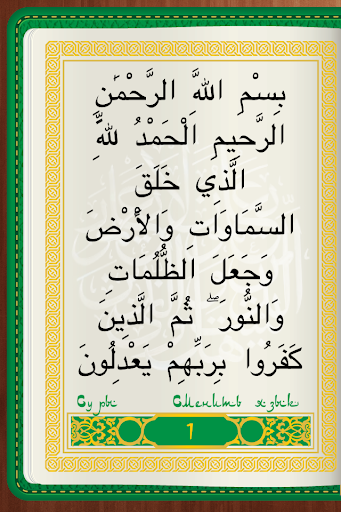 بِسْمِ اللَّهِ الرَّحْمَٰنِ
الرَّحِيمِ الْحَمْدُ لِلَّهِ
الَّذِي خَلَقَ
السَّمَاوَاتِ وَالْأَرْضَ
وَجَعَلَ الظُّلُمَاتِ
وَالنُّورَ ۖ ثُمَّ الَّذِينَ
كَفَرُوا بِرَبِّهِمْ يَعْدِلُونَ
Суры Сменить язык
1